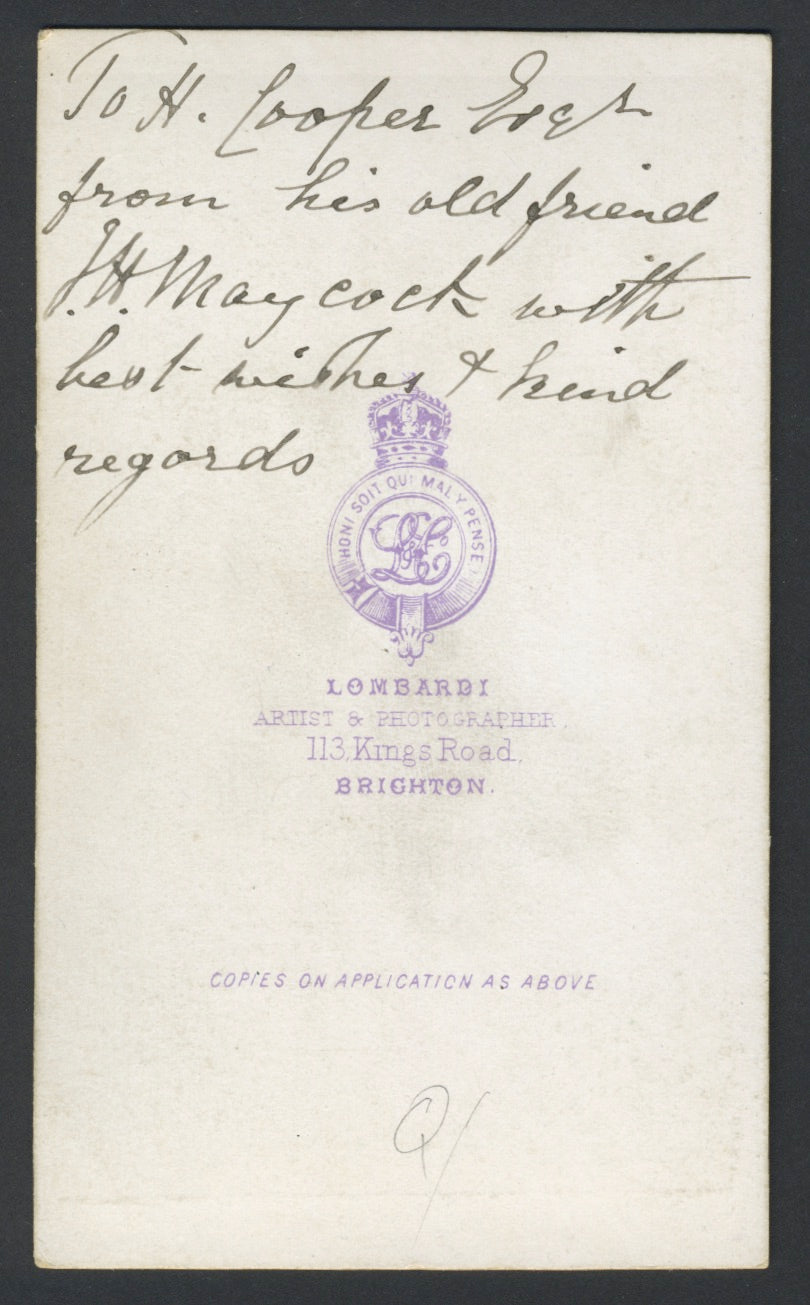 To H. Cooper Esqr
from his old friend
J.H. Maycock with
best wishes & kind
regards
HONI SOIT QUI MAL Y PENSE
LOMBARDI
ARTIST & PHOTOGRAPHER.
113, Kings Road,
BRIGHTON.
COPIES ON APPLICATION AS ABOVE